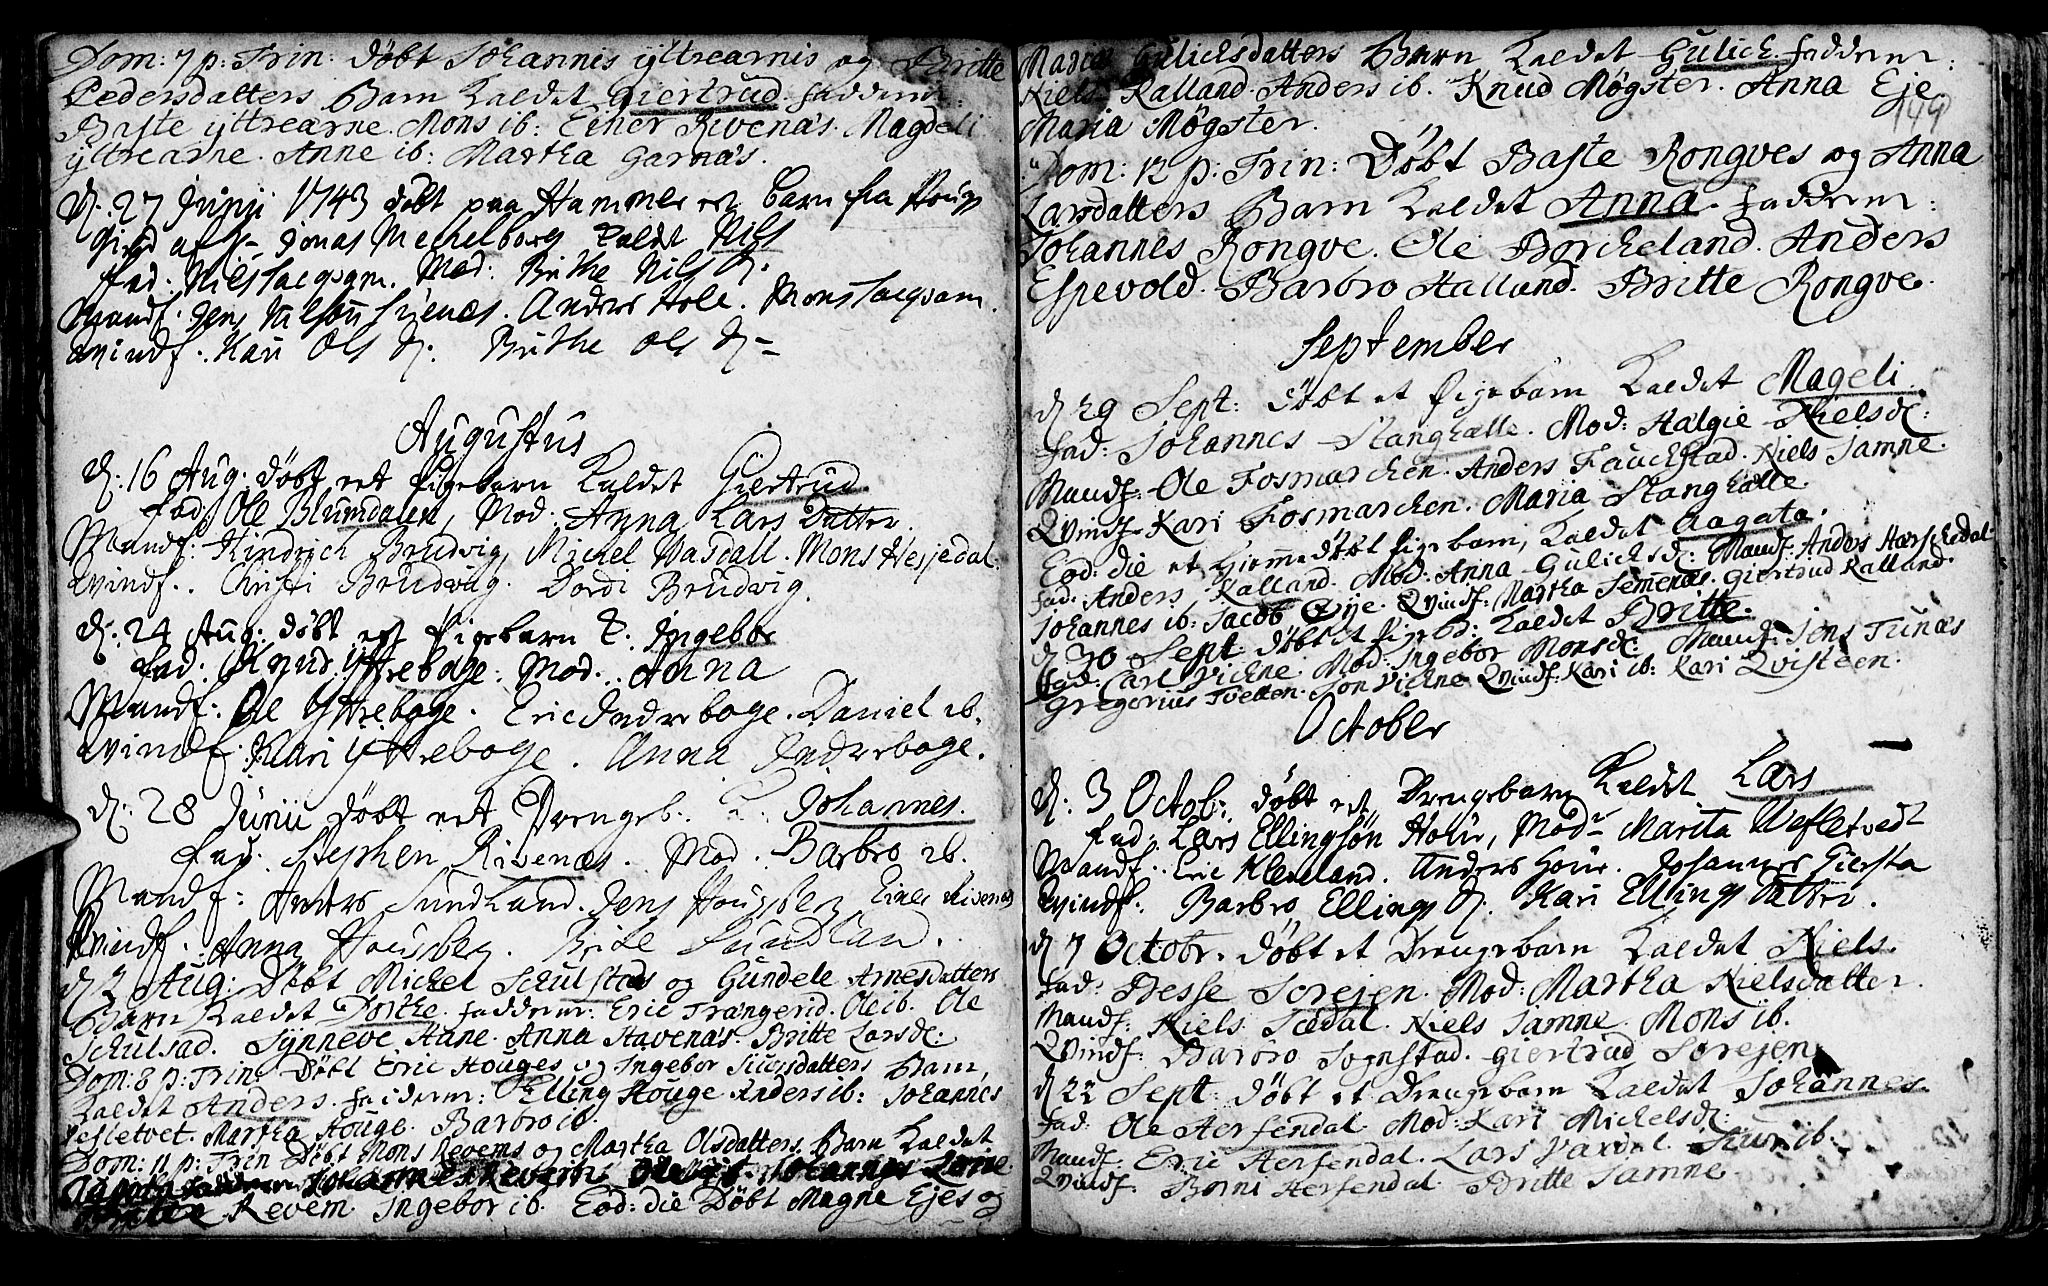 Dom: 7 p: Trin: Døbt Johannis Yttrearnis og Britte
Pedersdatters Barn kaldet Giertrud. Fadderne:
Baste Yttrearne. Mons ib: Einer Rivenäs. Magdeli
Yttrearne. Anne ib: Martha Garnäs.
D. 27 Junii 1743 døbt paa Hammer et barn fra
af Jonas Mechelborg kaldt Nils
Fad: Nils Jacopsøn. Mod: Brithe Nils D.
Mandf: Jens Nilsøn. Anders Hole. Mons Jacopsøn.
Qvindf: Kari Ols D. Brithe Ols D
Augustus
D. 16 Aug: døbt eet Pigebarn kaldet Giertrud
Fad: Ole Blumdalen, Mod: Anna Lars Datter.
Mandf: Hindrich Brudvig, Michel Vasdall. Mons Hesjedal.
Qvindf: Christi Brudvig. Dordi Brudvig.
D. 24 Aug: døbt eet Pigebarn k. Ingebor
Fad: Knud Yttrebøge. Mod: Anna
Mandf: Ole Yttrebøge. Eric Indrebøge. Daniel ib.
Qvindf: Kari Yttrebøge. Anna Indrebøge.
D. 28 Junii døbt eet Drengeb. k. Johannes.
Fad: Stephen Rivenæs. Mod. Barbro ib.
Mandf: Anders Sundland. Jens Hougsber Einer Rivenæs
Qvindf: Anna Housber. Brite Sundlan.
D 2 Aug: Døbt Michel Schulstads og Gundele Arnesdatters
Barn kaldet Dorthe. Fadderne: Eric Trångerid. Ole ib. Ole
Schulsad. Synneve Hane. Anna Havenäs. Britte Larsd:
Dom: 8 p: Trin Døbt Eric Houges og Ingebor Siursdatters Barn,
kaldet Anders. Fadderne: Elling Houge Anders ib: Johannes
Vefletvet. Martha Houge. Barbro ib.
Dom: 11 p: Trin Døbt Mons Revems og Martha Olsdatters Barn kaldet
Fadderne Johannes Revem. Ole ib. Johannes Lone
Britte Revem Ingebor ib. Eod: die Døbt Magne Ejes og
Maria Gulichsdatters Barn kaldet Gulich. Fadderne:
Niels Kalland. Anders ib. Knud Møgster. Anna Eje
Maria Møgster.
149
Dom: 12 p: Trin: Døbt Baste Rongves og Anna
Larsdatters Barn kaldet Anna. Fadderne:
Johannes Rongve. Ole Borcheland. Anders
Espevold. Barbro Halland. Britte Rongve.
September
D 29 Sept: Døbt et Pigebarn kaldet Mageli
Fad: Johannes Stanghälle. Mod: Halgie Nielsd:
Mandf: Ole Fosmarchen. Anders Fauchstad. Niels Samne.
Qvindf: Kari Fosmarchen. Maria Stanghälle
Eod: die et Hiemmedøbt Pigebarn, kaldet Aagata.
Fad: Anders Kalland. Mod: Anna Gulichsd: Mandf: Anders Hærschedal
Johannes ib: Jacob Øye. Qvindf: Martha Semenäs. Giertrud Kalland.
D 30 Sept: døbt et Pigeb: kaldet Britte.
Fad: Carl Vichne Mod: Ingebor Monsd: Mandf: Jens Tunäs
Gregorius Tvetten. Jon Vichne Qvindf: Kari ib: Kari Qvisteen.
October
D. 3 Octob: døbt eet Drengebarn kaldet Lars
Fad: Lars Ellingsøn Houe, Mod: Marita Vefletvedt
Mandf: Eric Kleveland. Anders Houe. Johannes Giersta
Qvindf: Barbro Ellings D. Kari Ellings Datter.
D 7 Octobr. døbt et Drengebarn kaldet Niels
Fad: Besse Sorejen. Mod: Martha Nielsdatter.
Mandf: Niels Sædal. Niels Samne. Mons ib.
Qvindf: Barbro Sognstad. Giertrud Sorejen
D 22 Sept: døbt et Drengebarn kaldet Johannes.
Fad: Ole Herfendal. Mod: Kari Michelsd:
Mandf: Eric Herfendal. Lars Siur ib.
Qvindf: Borni Herfendal. Britte Samne